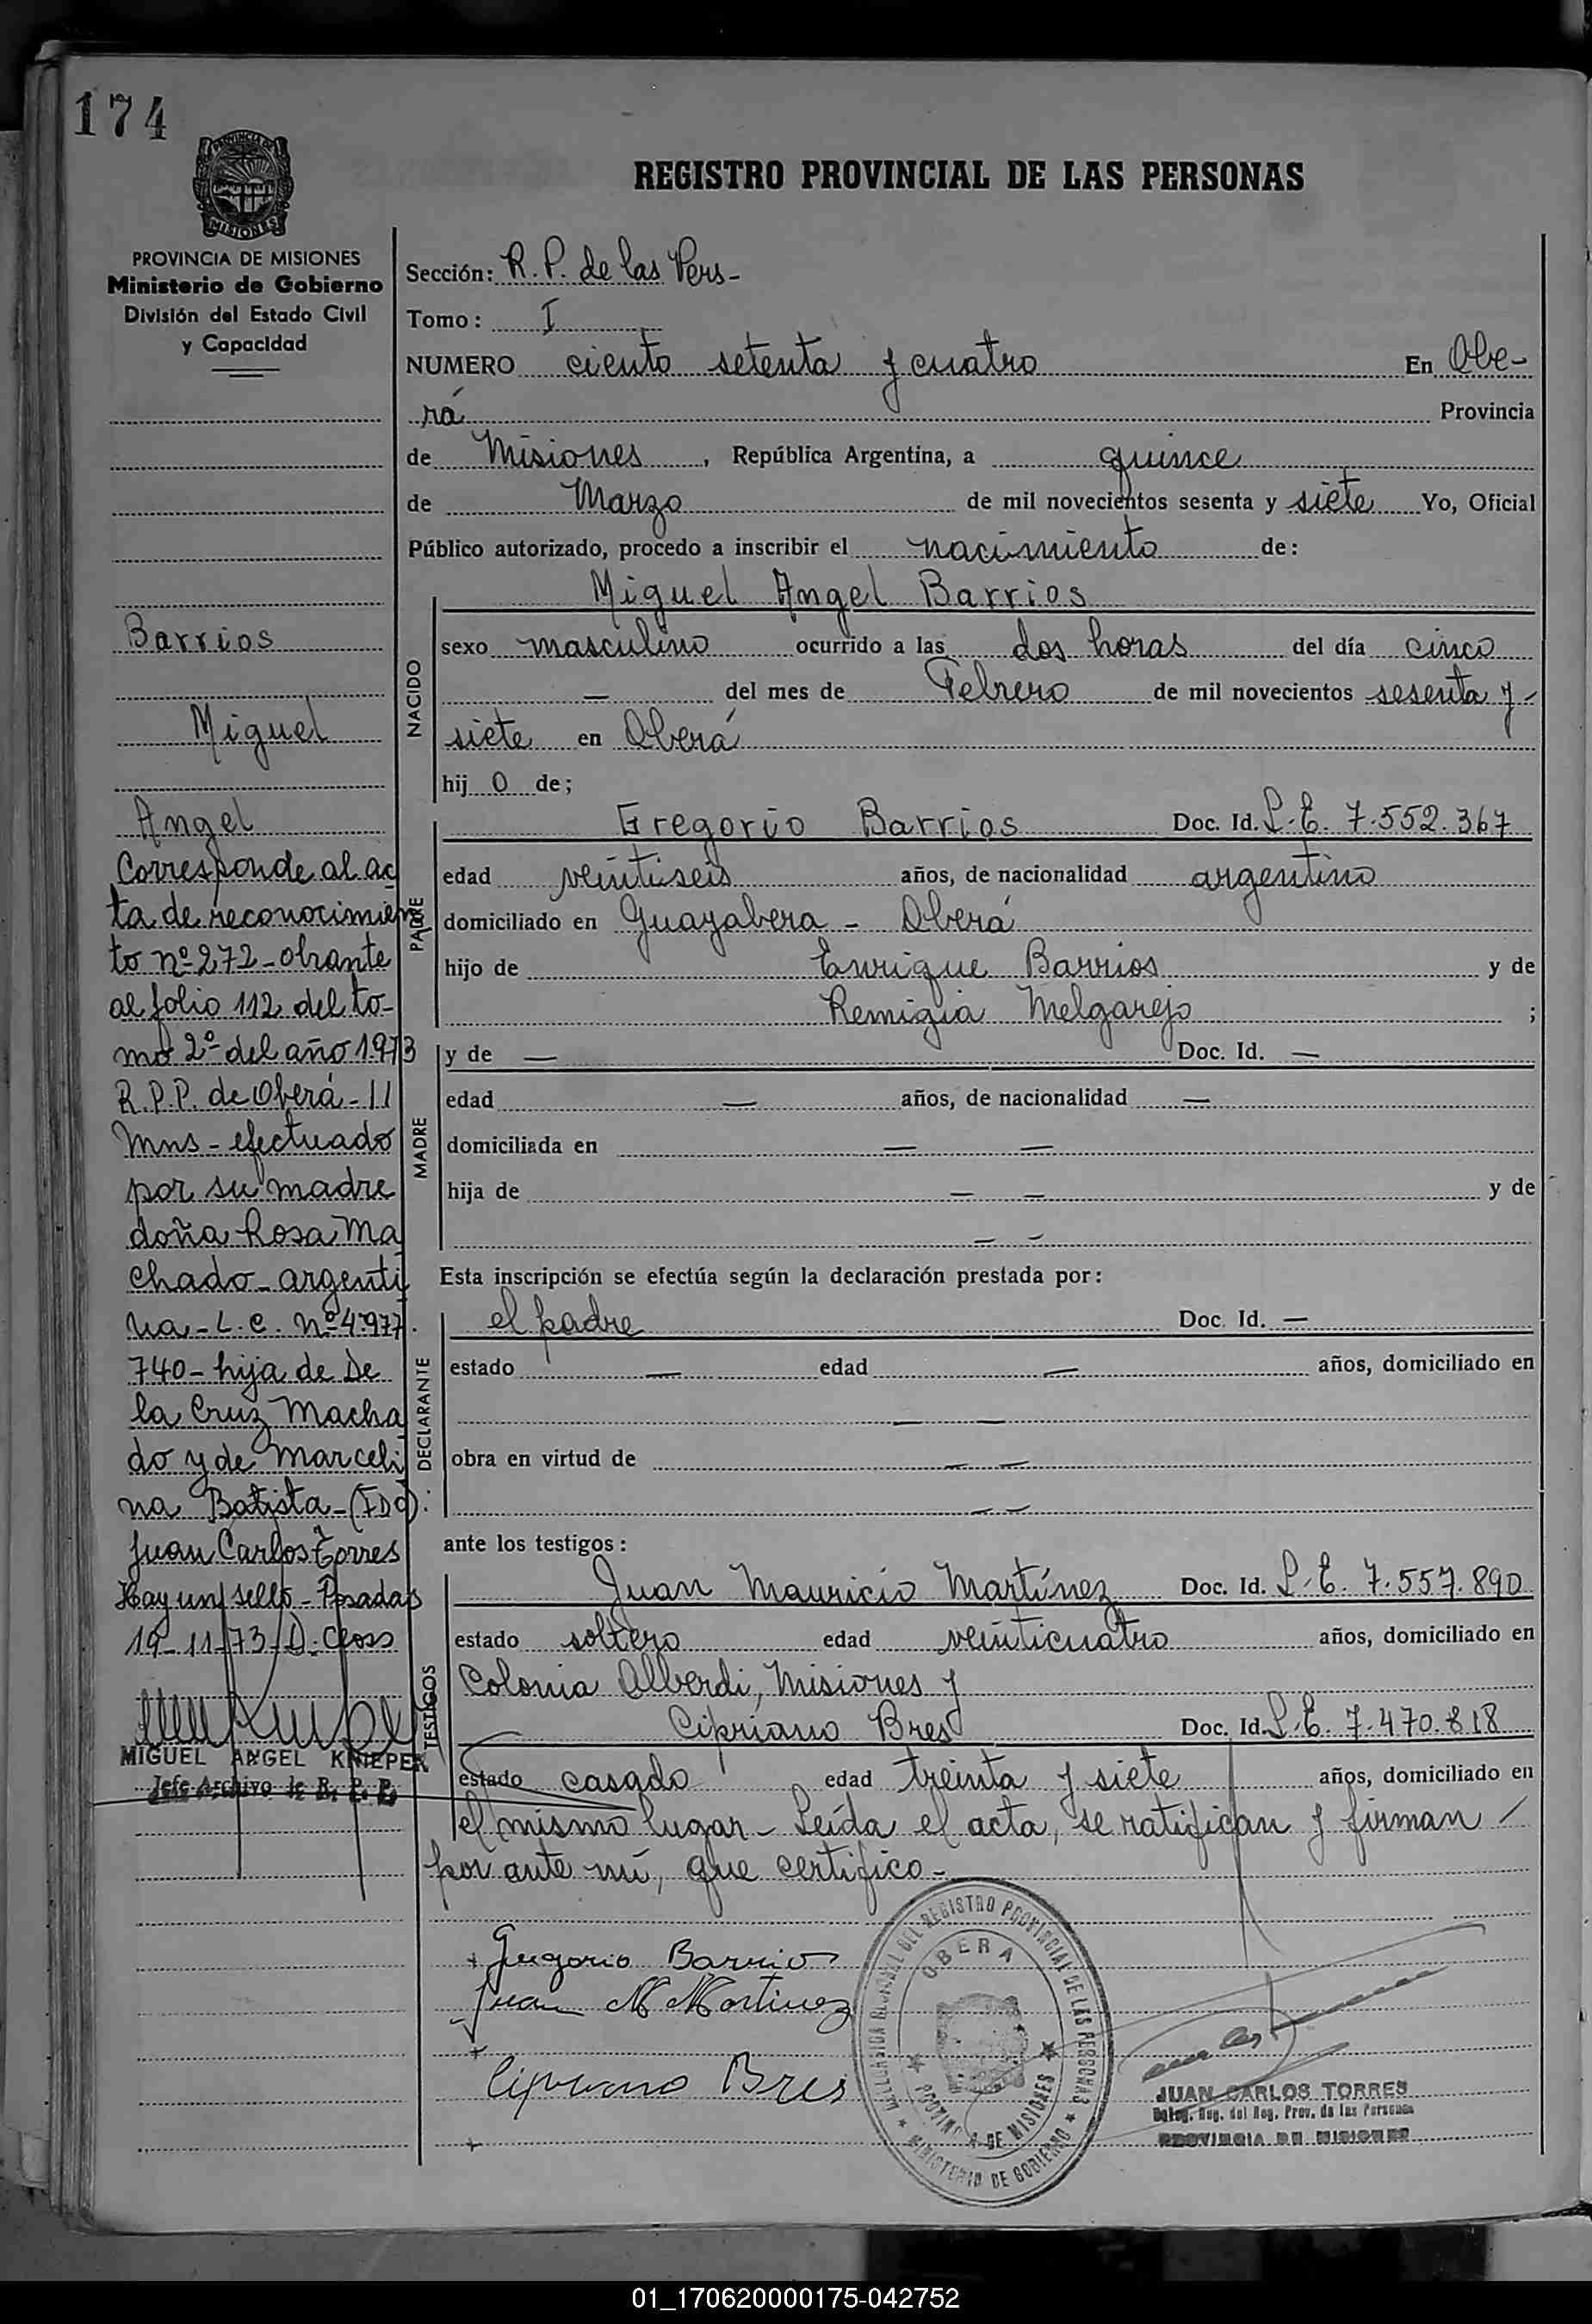 174
PROVINCIA DE
MISIONES
REGISTRO PROVINCIAL DE LAS PERSONAS
PROVINCIA DE MISIONES
Ministerio de Gobierno
División del Estado Civil
y Capacidad
Barrios
Miguel
Angel
Corresponde al ac
ta de reconocimien
to nº 272 - obrante
al folio 112 del to-
mo 2º del año 1973
R.P.P. de Oberá - 11
Mns - efectuado
por su madre
doña Rosa Ma
chado - argenti
na - L.C. nº 4.977.
740 - hija de De
la Cruz Macha
do y de Marceli
na Batista - (FDO):
Juan Carlos Torres
Hay un sello - Posadas
19-11-73
MIGUEL ANGEL KNIEPER
Jefe Archivo de R. P. P.
Sección: R. P. de las Pers-
Tomo: I
NUMERO ciento setenta y cuatro En Obe-
rá Provincia
de Misiones, República Argentina, a quince
de Marzo de mil novecientos sesenta y siete Yo, Oficial
Público autorizado, procedo a inscribir el nacimiento de:
Miguel Angel Barrios
NACIDO
sexo masculino ocurrido a las dos horas del día cinco
— del mes de Febrero de mil novecientos sesenta y -
siete en Oberá
hij o de;
PADRE
Gregorio Barrios Doc. Id. L. E. 7.552.367
edad veintiseis años, de nacionalidad argentino
domiciliado en Guayabera - Oberá
hijo de Enrique Barrios y de
Remigia Melgarejo ;
MADRE
y de — Doc. Id. —
edad — años, de nacionalidad —
domiciliada en — —
hija de — — y de
— —
Esta inscripción se efectúa según la declaración prestada por:
DECLARANTE
el padre Doc. Id. —
estado — edad — años, domiciliado en
— —
obra en virtud de — —
— —
ante los testigos:
TESTIGOS
Juan Mauricio Martínez Doc. Id. L. E. 7.557.890
estado soltero edad veinticuatro años, domiciliado en
Colonia Alberdi, Misiones y
Cipriano Bres Doc. Id. L. E. 7.470.818
estado casado edad treinta y siete años, domiciliado en
el mismo lugar - Leída el acta, se ratifican y firman -
por ante mí, que certifico -
Gregorio Barrios
Juan M Martinez
Cipriano Bres
DELEGACION REGIONAL DEL REGISTRO PROVINCIAL DE LAS PERSONAS
OBERA
PROVINCIA DE MISIONES
MINISTERIO DE GOBIERNO
JUAN CARLOS TORRES
Deleg. Reg. del Reg. Prov. de las Personas
PROVINCIA DE MISIONES
01_170620000175-042752